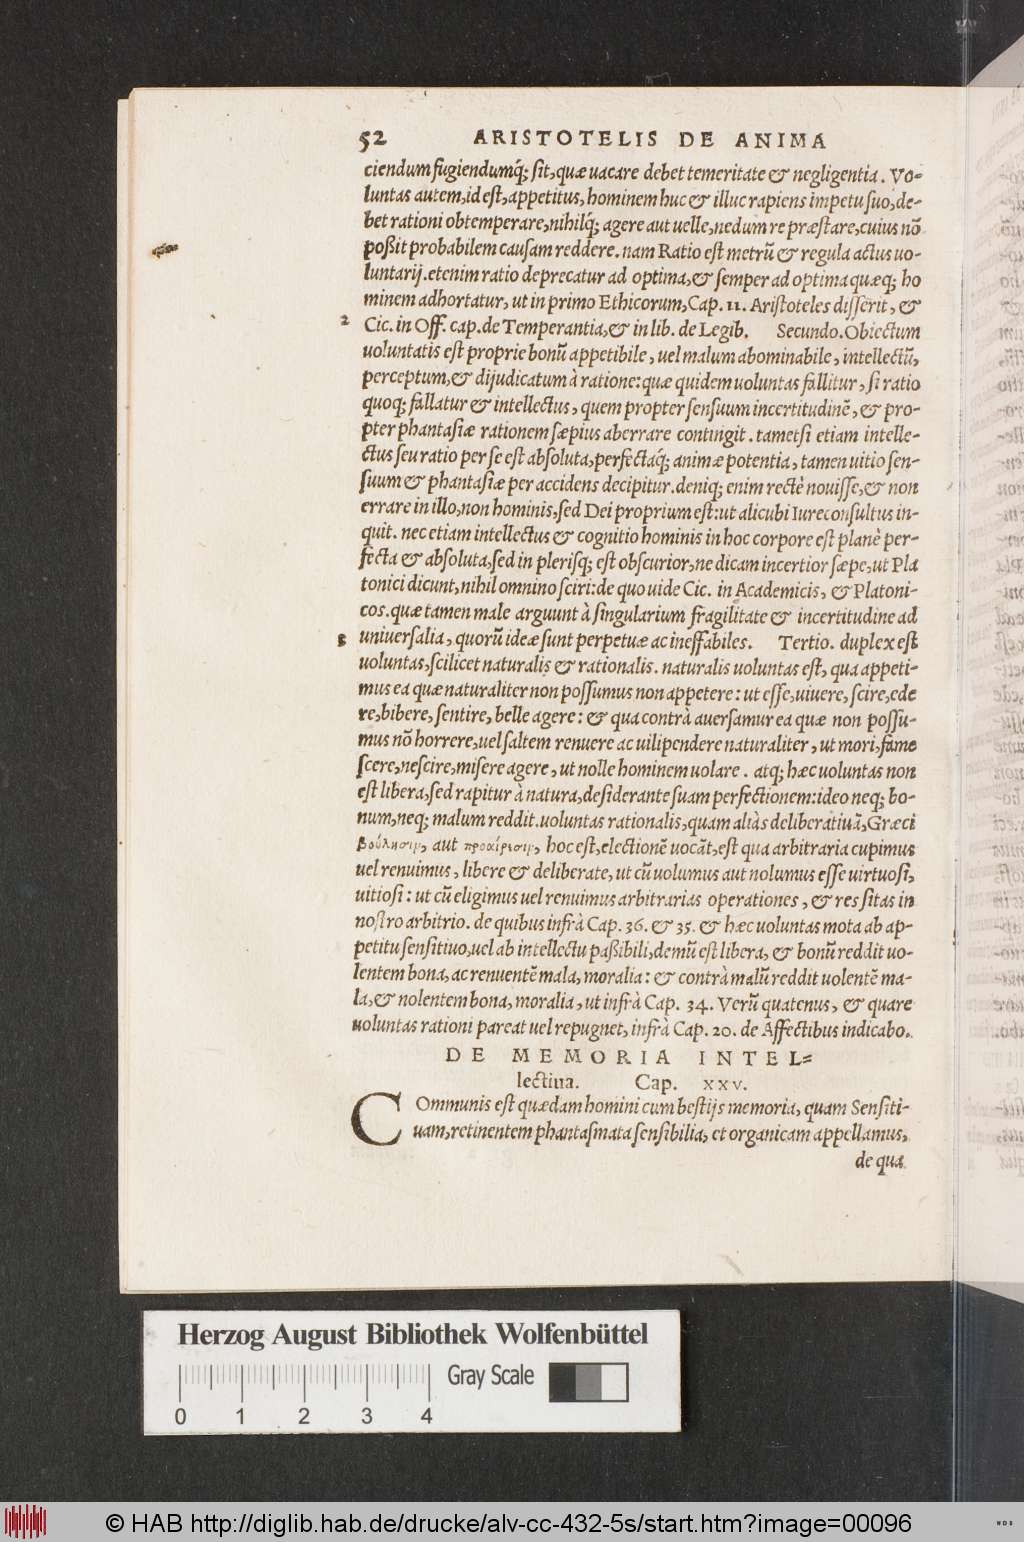 52 ARISTOTELIS DE ANIMA
ciendum fugiendumq́; sit, quæ uacare debet temeritate & negligentia. Vo-
luntas autem, id est, appetitus, hominem huc & illuc rapiens impetu suo, de-
bet rationi obtemperare, nihilq́; agere aut uelle, nedum re præstare, cuius nō
poßit probabilem causam reddere. nam Ratio est metrū & regula actus uo-
luntarij. etenim ratio deprecatur ad optima, & semper ad optima quæq; ho
minem adhortatur, ut in primo Ethicorum, Cap. 11. Aristoteles disserit, &
2 Cic. in Off. cap. de Temperantia, & in lib. de Legib. Secundo. Obiectum
uoluntatis est proprie bonū appetibile, uel malum abominabile, intellectū,
perceptum, & dijudicatum à ratione: quæ quidem uoluntas fallitur, si ratio
quoq; fallatur & intellectus, quem propter sensuum incertitudinē, & pro-
pter phantasiæ rationem sæpius aberrare contingit. tametsi etiam intelle-
ctus seu ratio per se est absoluta, perfectaq́; animæ potentia, tamen uitio sen-
suum & phantasiæ per accidens decipitur. deniq; enim rectè nouisse, & non
errare in illo, non hominis, sed Dei proprium est: ut alicubi Iureconsultus in-
quit. nec etiam intellectus & cognitio hominis in hoc corpore est planè per-
fecta & absoluta, sed in plerisq; est obscurior, ne dicam incertior sæpe, ut Pla
tonici dicunt, nihil omnino sciri: de quo uide Cic. in Academicis, & Platoni-
cos. quæ tamen male arguunt à singularium fragilitate & incertitudine ad
3 uniuersalia, quorū ideæ sunt perpetuæ ac ineffabiles. Tertio. duplex est
uoluntas, scilicet naturalis & rationalis. naturalis uoluntas est, qua appeti-
mus ea quæ naturaliter non possumus non appetere: ut esse, uiuere, scire, ede
re, bibere, sentire, belle agere: & qua contrà auersamur ea quæ non possu-
mus nō horrere, uel saltem renuere ac uilipendere naturaliter, ut mori, fame
scere, nescire, misere agere, ut nolle hominem uolare. atq; hæc uoluntas non
est libera, sed rapitur à natura, desiderante suam perfectionem: ideo neq; bo-
num, neq; malum reddit. uoluntas rationalis, quam aliàs deliberatiuā, Græci
βούλησιν, aut προαίρεσιν, hoc est, electionē uocāt, est qua arbitraria cupimus
uel renuimus, libere & deliberate, ut cū uolumus aut nolumus esse uirtuosi,
uitiosi: ut cū eligimus uel renuimus arbitrarias operationes, & res sitas in
nostro arbitrio. de quibus infrà Cap. 36. & 35. & hæc uoluntas mota ab ap-
petitu sensitiuo, uel ab intellectu paßibili, demū est libera, & bonū reddit uo-
lentem bona, ac renuentē mala, moralia: & contrà malū reddit uolentē ma-
la, & nolentem bona, moralia, ut infrà Cap. 34. Verū quatenus, & quare
uoluntas rationi pareat uel repugnet, infrà Cap. 20. de Affectibus indicabo.
DE MEMORIA INTEL=
lectiua. Cap. XXV.
COmmunis est quædam homini cum bestijs memoria, quam Sensiti-
uam, retinentem phantasmata sensibilia, et organicam appellamus,
de qua
Herzog August Bibliothek Wolfenbüttel
Gray Scale
0 1 2 3 4
© HAB http://diglib.hab.de/drucke/alv-cc-432-5s/start.htm?image=00096